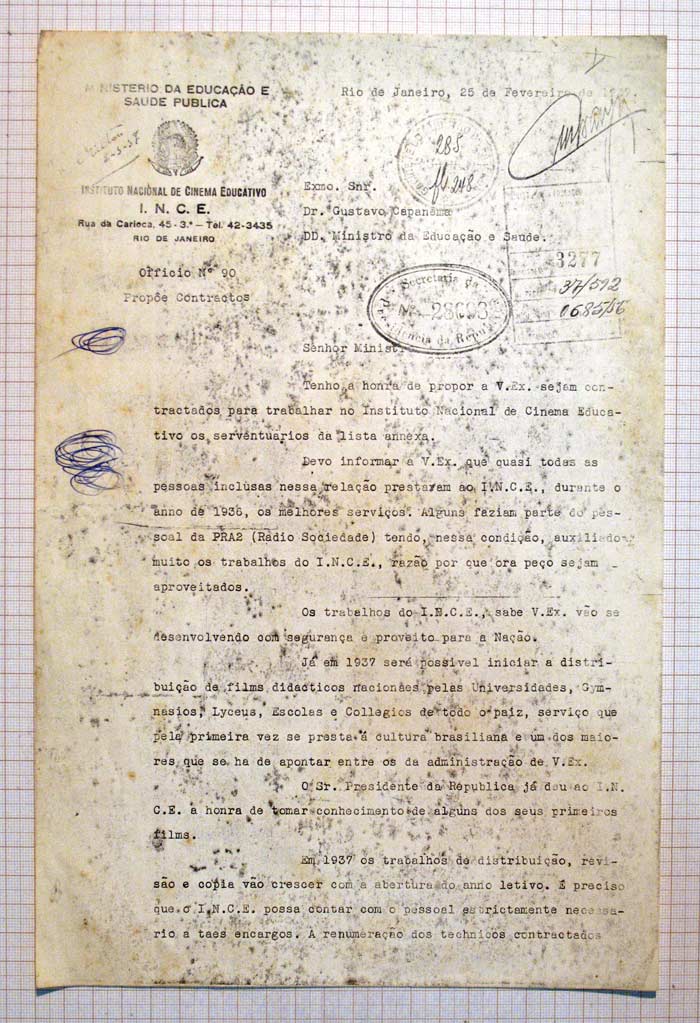 MINISTERIO DA EDUCAÇÃO E
SAUDE PUBLICA
INSTITUTO NACIONAL DE CINEMA EDUCATIVO
I. N. C. E.
Rua da Carioca, 45 - 3.º — Tel. 42-3435
RIO DE JANEIRO
Officio Nº 90
Propõe Contractos
Rio de Janeiro, 25 de Fevereiro de
285
fl 248
3277
37/592
0685/56
Exmo. Snr.
Dr. Gustavo Capanema
DD. Ministro da Educação e Saude.
Secretaria da
Presidencia da Republica
Senhor Ministro
Tenho a honra de propor a V.Ex. sejam con-
tractados para trabalhar no Instituto Nacional de Cinema Educa-
tivo os serventuarios da lista annexa.
Devo informar a V.Ex. que quasi todas as
pessoas inclusas nessa relação prestaram ao I.N.C.E., durante o
anno de 1936, os melhores serviços. Alguns faziam parte do pes-
soal da PRA2 (Radio Sociedade) tendo, nessa condição, auxiliado
muito os trabalhos do I.N.C.E., razão por que ora peço sejam
aproveitados.
Os trabalhos do I.N.C.E., sabe V.Ex. vão se
desenvolvendo com segurança e proveito para a Nação.
Já em 1937 será possivel iniciar a distri-
buição de films didacticos nacionaes pelas Universidades, Gym-
nasios, Lyceus, Escolas e Collegios de todo o paiz, serviço que
pela primeira vez se presta á cultura brasiliana e um dos maio-
res que se ha de apontar entre os da administração de V.Ex.
O Sr. Presidente da Republica já deu ao I.N.
C.E. a honra de tomar conhecimento de alguns dos seus primeiros
films.
Em 1937 os trabalhos de distribuição, revi-
são e copia vão crescer com a abertura do anno letivo. É preciso
que o I.N.C.E. possa contar com o pessoal estrictamente necessa-
rio a taes encargos. A renumeração dos technicos contractados